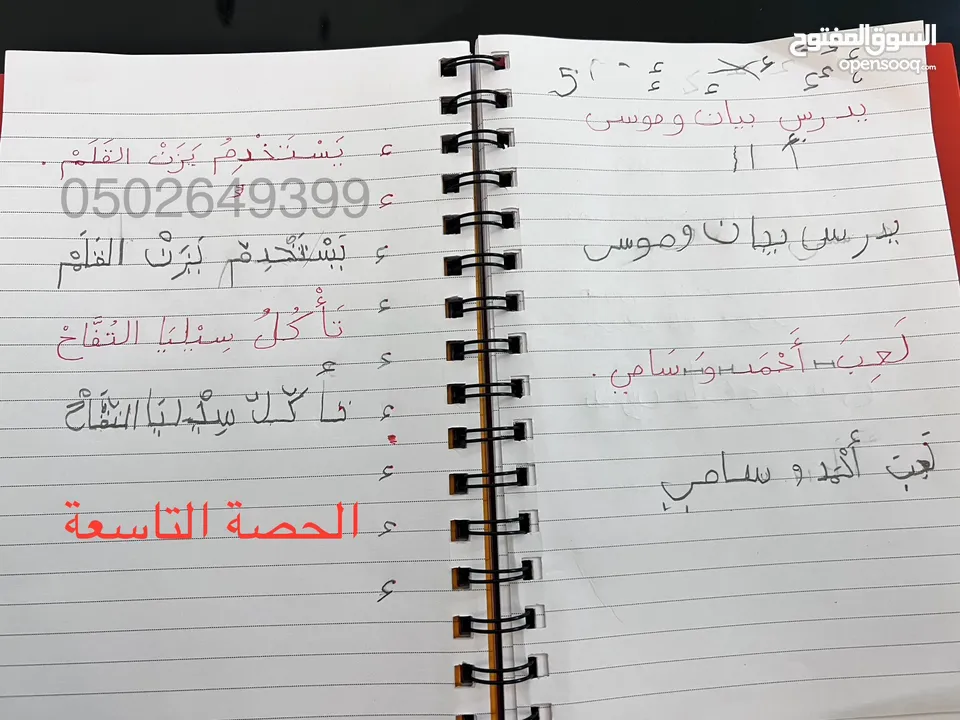 السوق المفتوح
opensooq.com
يدرس بيان وموسى
يدرس بيان وموسى
لَعِبَ أَحْمَد وَسَامي.
لَعِبَ أَحْمَد و سامي
يَسْتَخْدِمُ يَزَنْ القَلَمْ.
0502649399
يَسْتَخْدِمُ يَزَنْ القَلَمْ
تَأْكُلُ سِيْليَا التُفَّاحْ
تَأكُلّ سِيْليَا التفَّاحْ
الحصة التاسعة